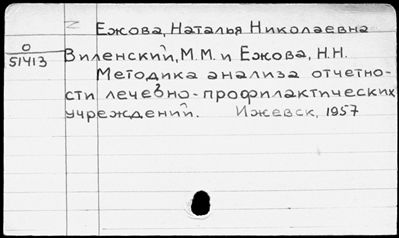 Ежова, Наталья Николаевна
О
51413
Виленский, М.М. и Ежова, Н.Н.
Методика анализа отчетно-
сти лечебно-профилактических
учреждений. Ижевск, 1957